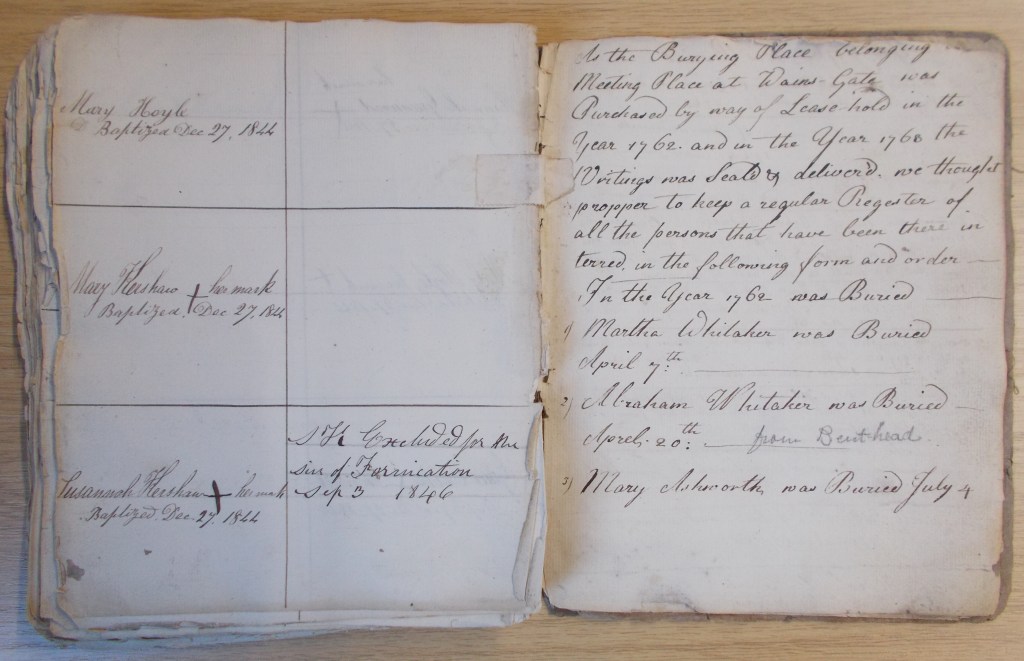 Mary Hoyle
Baptized Dec 27, 1844
Mary Hershaw + her mark
Baptized. Dec 27, 1844
Susannah Hershaw + her mark
Baptized. Dec. 27, 1844
S H Excluded for the
sin of Fornication
Sep 3 1846
As the Burying Place belonging
Meeting Place at Wains-Gate was
Purchased by way of Lease hold in the
Year 1762. and in the Year 1768 the
Writings was Seald & deliverd. we thought
propper to keep a regular Regester of
all the persons that have been there in
terred, in the following form and order
In the Year 1762 was Buried
1) Martha Whitaker was Buried
April 7th.
2) Abraham Whitaker was Buried
April. 20th: from Bent-head
3) Mary Ashworth, was Buried July 4